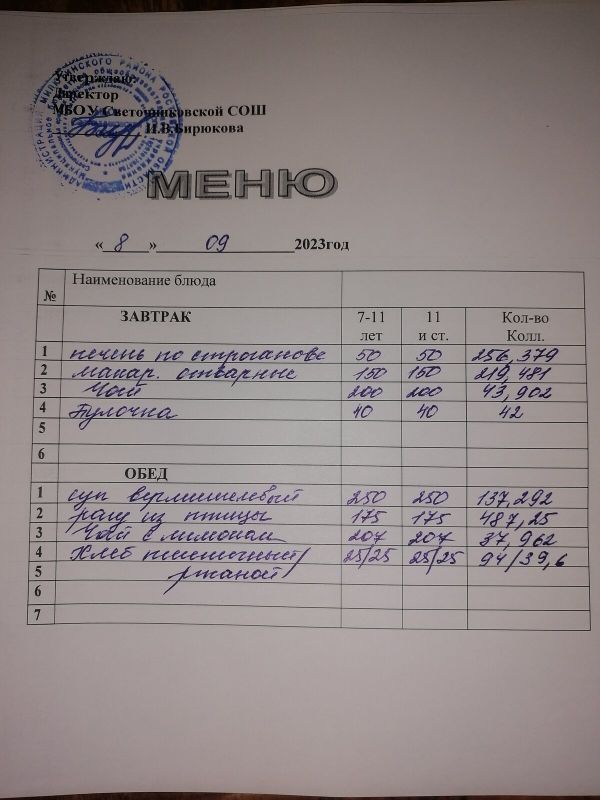 Утверждаю:
Директор
МБОУ Светочниковской СОШ
И.В.Бирюкова
МЕНЮ
« 8 » 09 2023год
№ Наименование блюда
ЗАВТРАК 7-11 лет 11 и ст. Кол-во Колл.
1 печень по строганове 50 50 256,379
2 макар. отварные 150 150 219,481
3 Чай 200 200 43,902
4 Булочка 40 40 42
5
6
ОБЕД
1 суп вермишелевый 250 250 137,292
2 рагу из птицы 175 175 487,25
3 Чай с лимоном 207 207 37,962
4 Хлеб пшеничный/ 25/25 25/25 94/39,6
5 ржаной
6
7